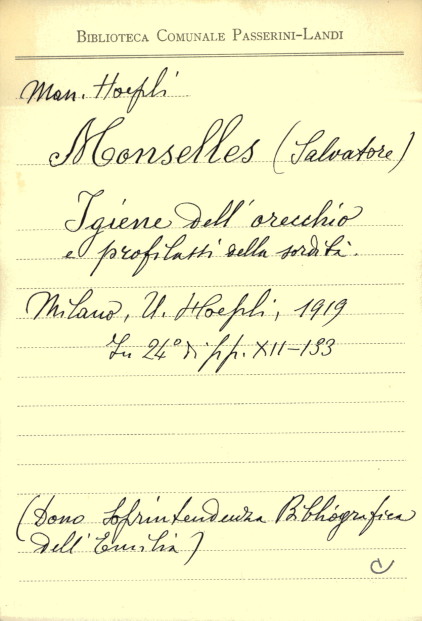 BIBLIOTECA COMUNALE PASSERINI-LANDI
Man. Hoepli
Monselles (Salvatore)
Igiene dell'orecchio
e profilassi della sordità.
Milano, U. Hoepli, 1919
In 24° di pp. XII-133
(Dono Soprintendenza Bibliografica
dell'Emilia)